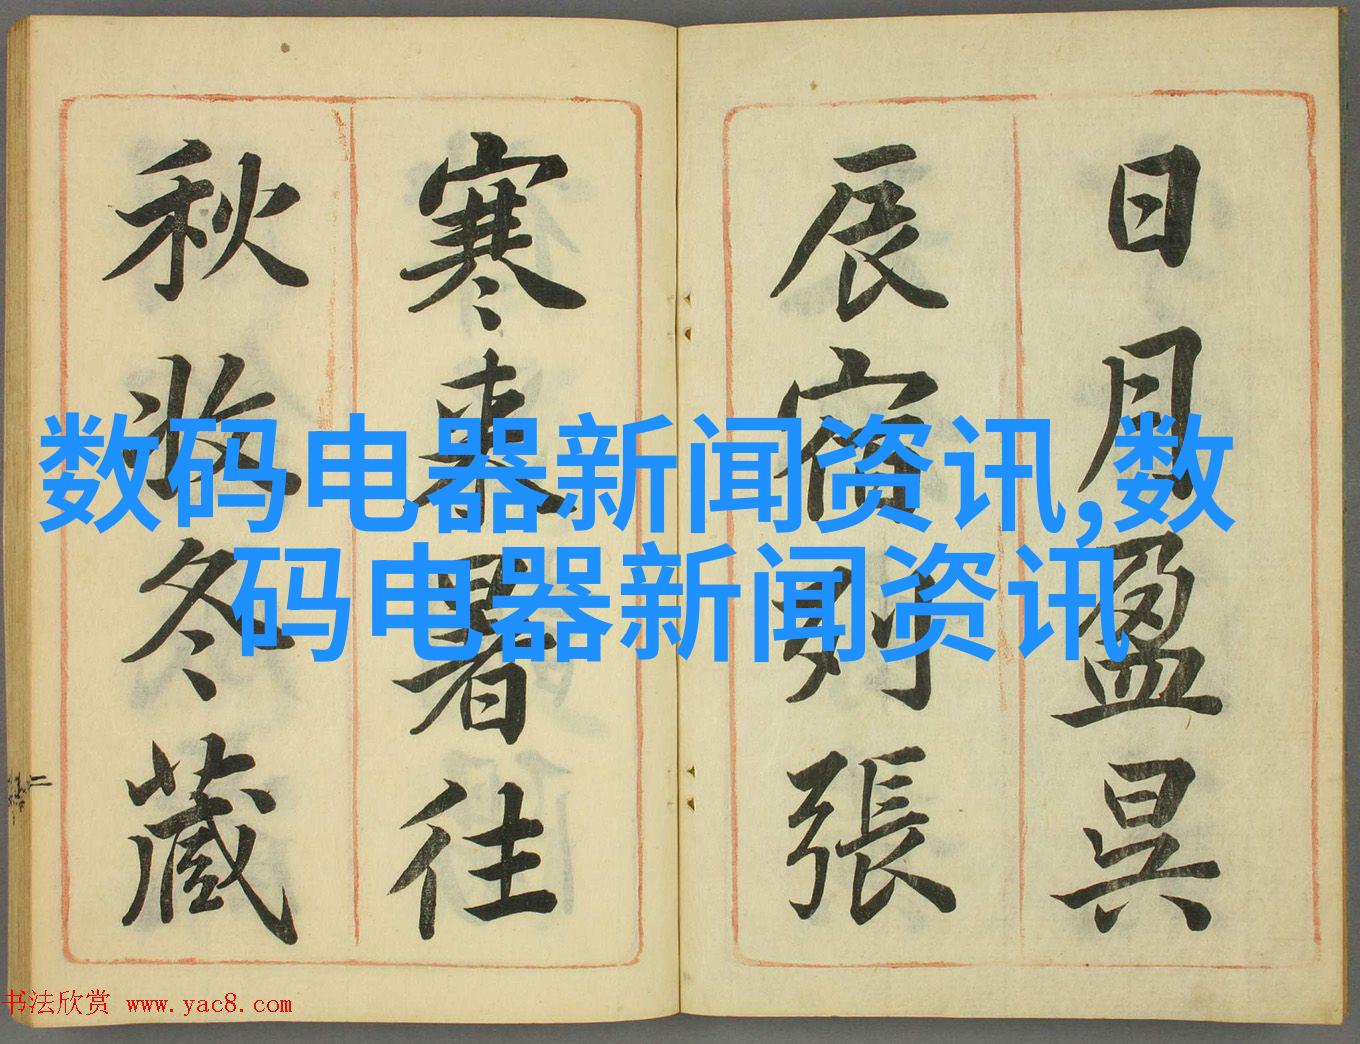 日月盈昃
辰宿列張
寒来暑往
秋收冬藏
数码电器新闻资讯,数
码电器新闻资讯
二
书法欣赏 www.yac8.com